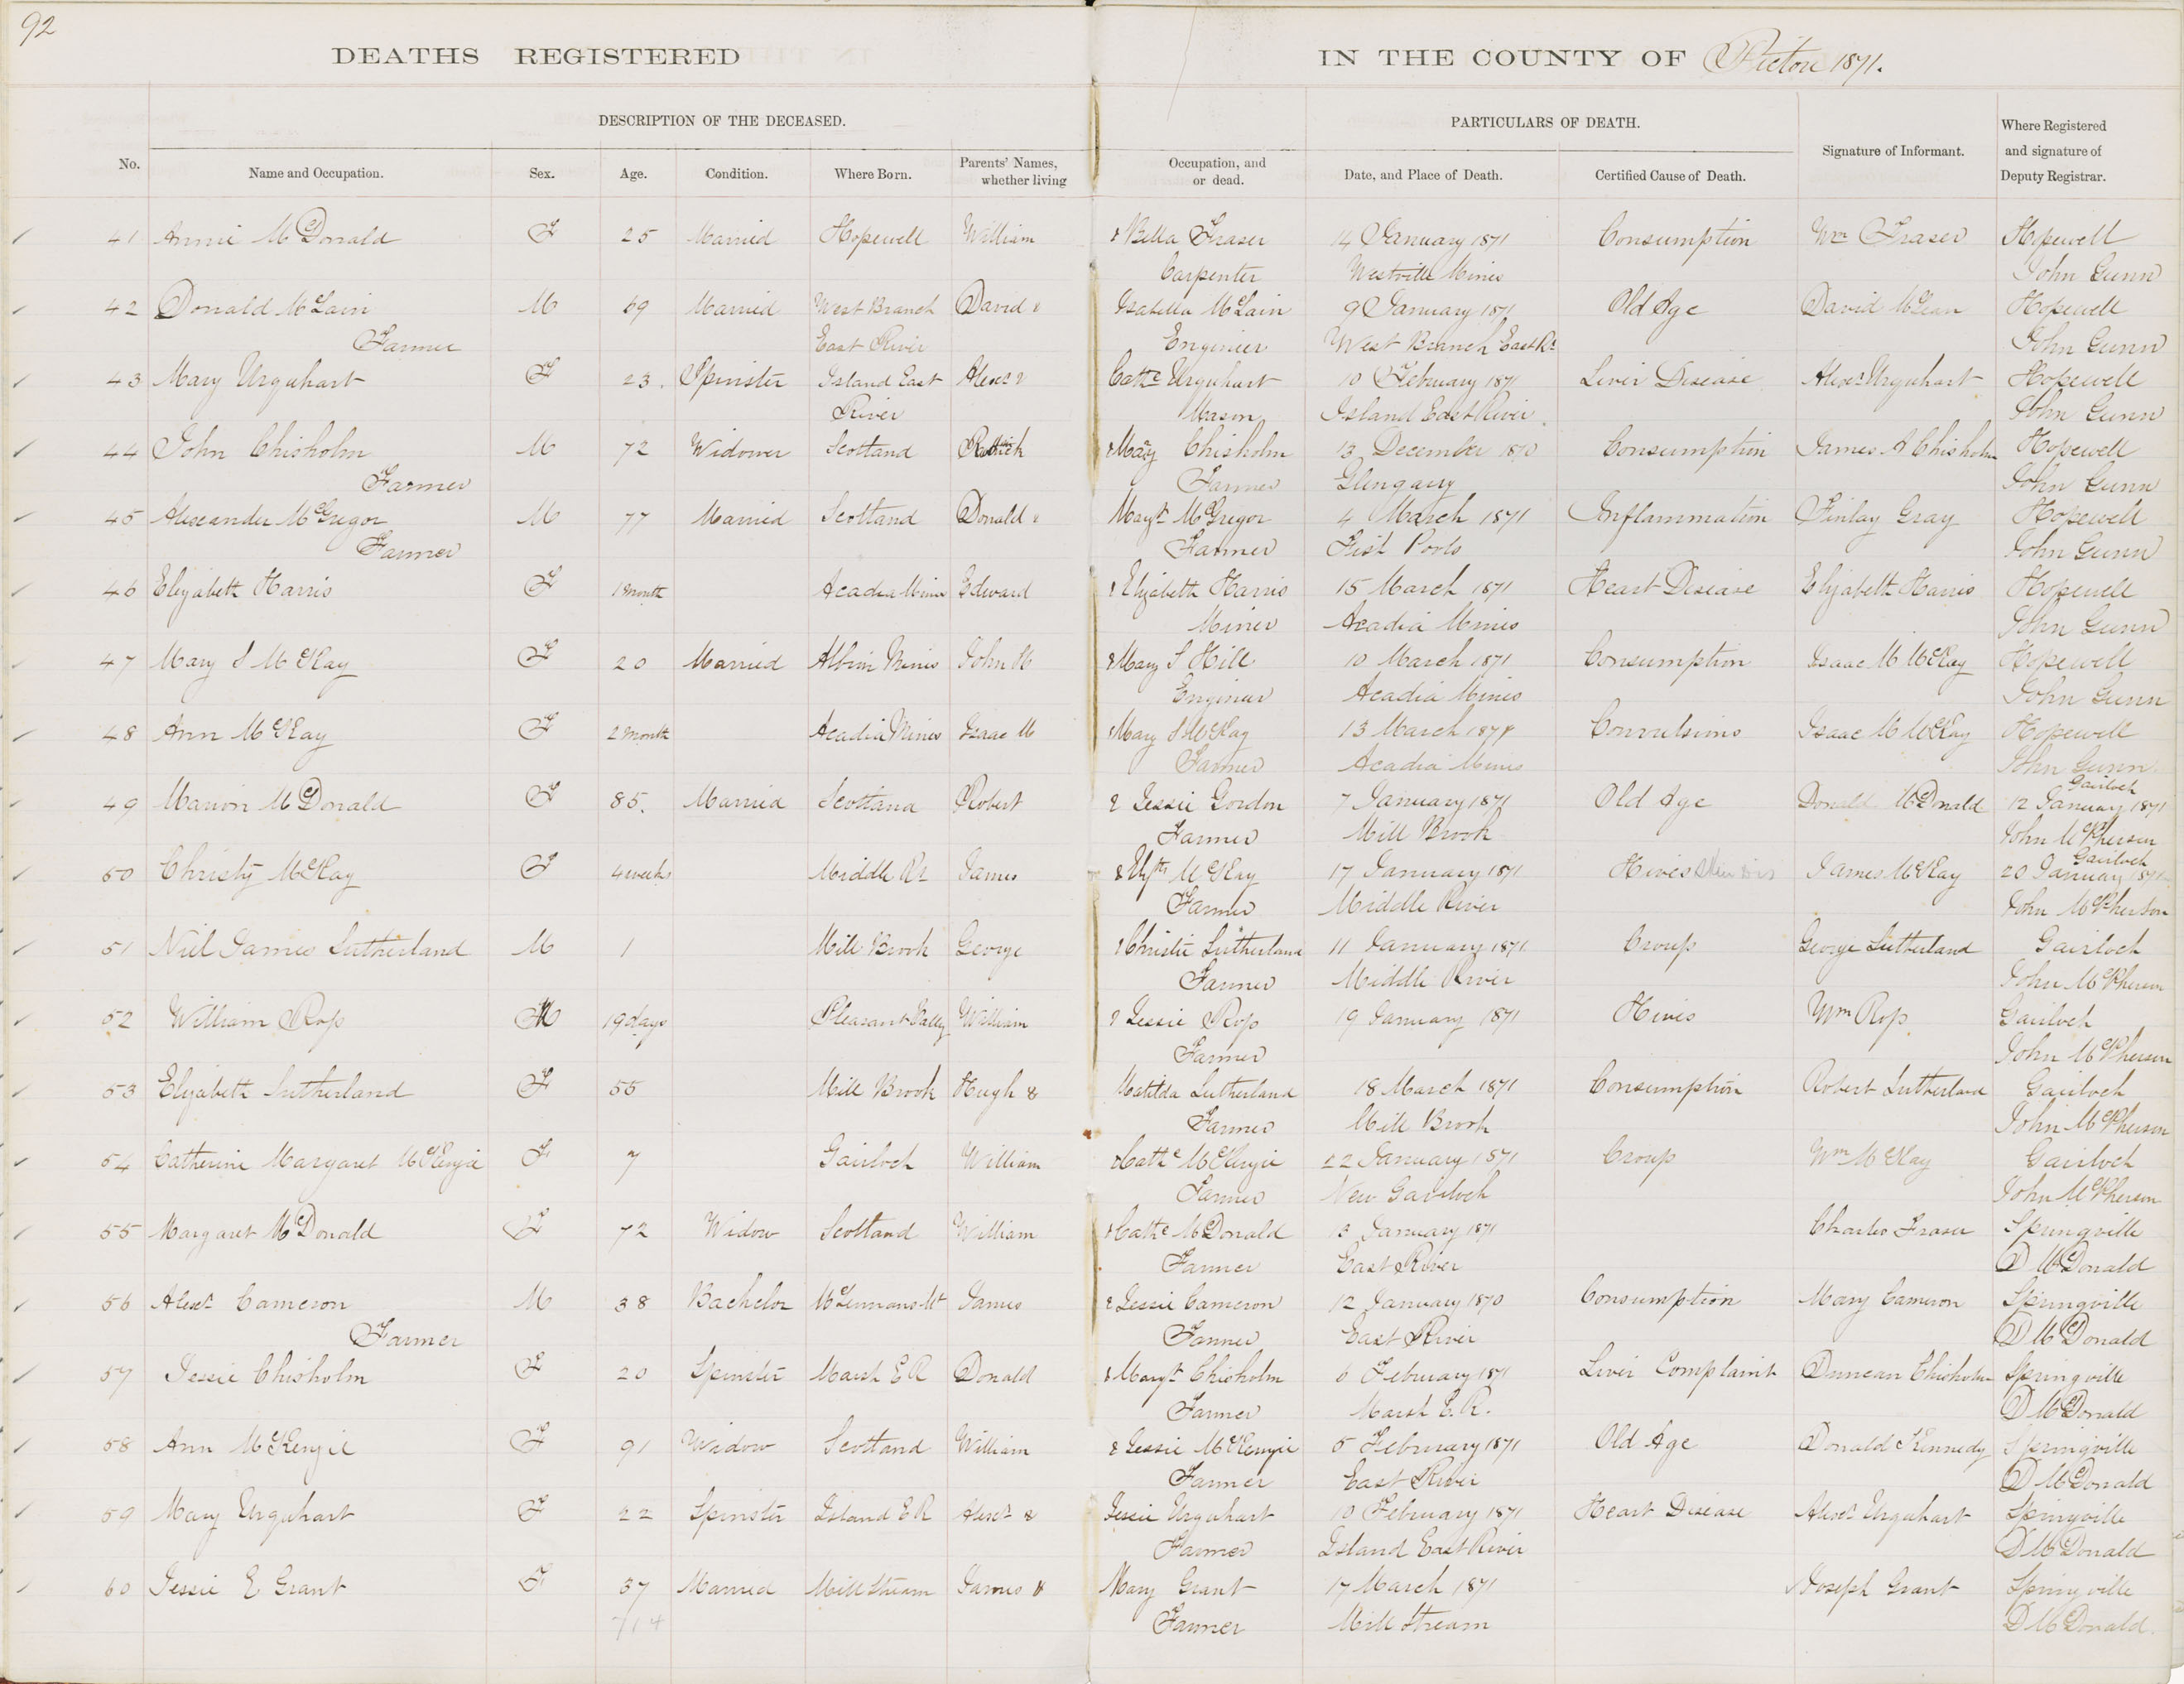 92
DEATHS REGISTERED IN THE COUNTY OF Pictou 1871.
DESCRIPTION OF THE DECEASED. PARTICULARS OF DEATH.
No. Name and Occupation. Sex. Age. Condition. Where Born. Parents' Names, whether living Occupation, and or dead. Date, and Place of Death. Certified Cause of Death. Signature of Informant. Where Registered and signature of Deputy Registrar.
41 Annie McDonald F 25 Married Hopewell William & Bella Fraser 14 January 1871 Consumption Wm Fraser Hopewell
Carpenter Westville Mines John Gunn
42 Donald McLain M 69 Married West Branch David & Isabella McLain 9 January 1871 Old Age David McLean Hopewell
Farmer East River Engineer West Branch East Rr John Gunn
43 Mary Urquhart F 23. Spinster Island East Alexr & Cathe Urquhart 10 February 1871 Liver Disease Alexr Urquhart Hopewell
River Mason Island East River John Gunn
44 John Chisholm M 72 Widower Scotland & Mary Chisholm 13 December 1870 Consumption James A Chisholm Hopewell
Farmer Farmer Glengary John Gunn
45 Alexander McGregor M 77 Married Scotland Donald & Margt McGregor 4 March 1871 Inflammation Finlay Gray Hopewell
Farmer Farmer Fish Pools John Gunn
46 Elizabeth Harris F 1 month Acadia Mines Edward & Elizabeth Harris 15 March 1871 Heart Disease Elizabeth Harris Hopewell
Miner Acadia Mines John Gunn
47 Mary S McKay F 20 Married Albion Mines John H & Mary S Hill 10 March 1871 Consumption Isaac M McKay Hopewell
Engineer Acadia Mines John Gunn
48 Ann McKay F 2 month Acadia Mines Isaac M & Mary S McKay 13 March 1871 Convulsions Isaac M McKay Hopewell
Farmer Acadia Mines John Gunn
49 Marion McDonald F 85. Married Scotland Robert & Jessie Gordon 7 January 1871 Old Age Donald McDonald Gairloch 12 January 1871
Farmer Mill Brook John McPherson
50 Christy McKay F 4 weeks Middle Rr James & Elizth McKay 17 January 1871 Hives James McKay Gairloch 20 January 1871
Farmer Middle River John McPherson
51 Niel James Sutherland M 1 Mill Brook George & Christie Sutherland 11 January 1871 Croup George Sutherland Gairloch
Farmer Middle River John McPherson
52 William Ross M 19 days Pleasant Valley William & Jessie Ross 19 January 1871 Hives Wm Ross Gairloch
Farmer John McPherson
53 Elizabeth Sutherland F 55 Mill Brook Hugh & Matilda Sutherland 18 March 1871 Consumption Robert Sutherland Gairloch
Farmer Mill Brook John McPherson
54 Catherine Margaret McKenzie F 7 Gairloch William & Cathe McKenzie 22 January 1871 Croup Wm McKay Gairloch
Farmer New Gairloch John McPherson
55 Margaret McDonald F 72 Widow Scotland William & Cathe McDonald 13 January 1871 Charles Fraser Springville
Farmer East River D McDonald
56 Alexr Cameron M 38 Bachelor McLennans Mt James & Jessie Cameron 12 January 1870 Consumption Mary Cameron Springville
Farmer Farmer East River D McDonald
57 Jessie Chisholm F 20 Spinster Marsh E R Donald & Margt Chisholm 6 February 1871 Liver Complaint Duncan Chisholm Springville
Farmer Marsh E. R. D McDonald
58 Ann McKenzie F 91 Widow Scotland William & Jessie McKenzie 5 February 1871 Old Age Donald Kennedy Springville
Farmer East River D McDonald
59 Mary Urquhart F 22 Spinster Island E R Alexr & Jessie Urquhart 10 February 1871 Heart Disease Alexr Urquhart Springville
Farmer Island East River D McDonald
60 Jessie E Grant F 37 Married Mill Stream James & Mary Grant 17 March 1871 Joseph Grant Springville
714 Farmer Mill Stream D McDonald.